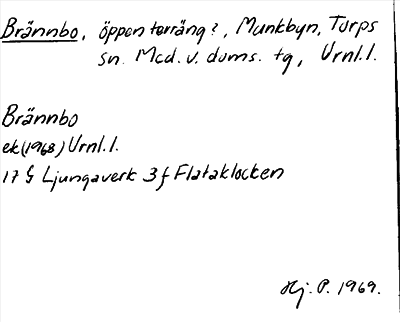 Brännbo, öppen terräng?, Munkbyn, Torps
sn. Med. v. doms. tg, Urnl.l.
Brännbo
ek(1968) Urnl.l.
17 G Ljungaverk 3 f Flataklocken
Hj. P. 1969.